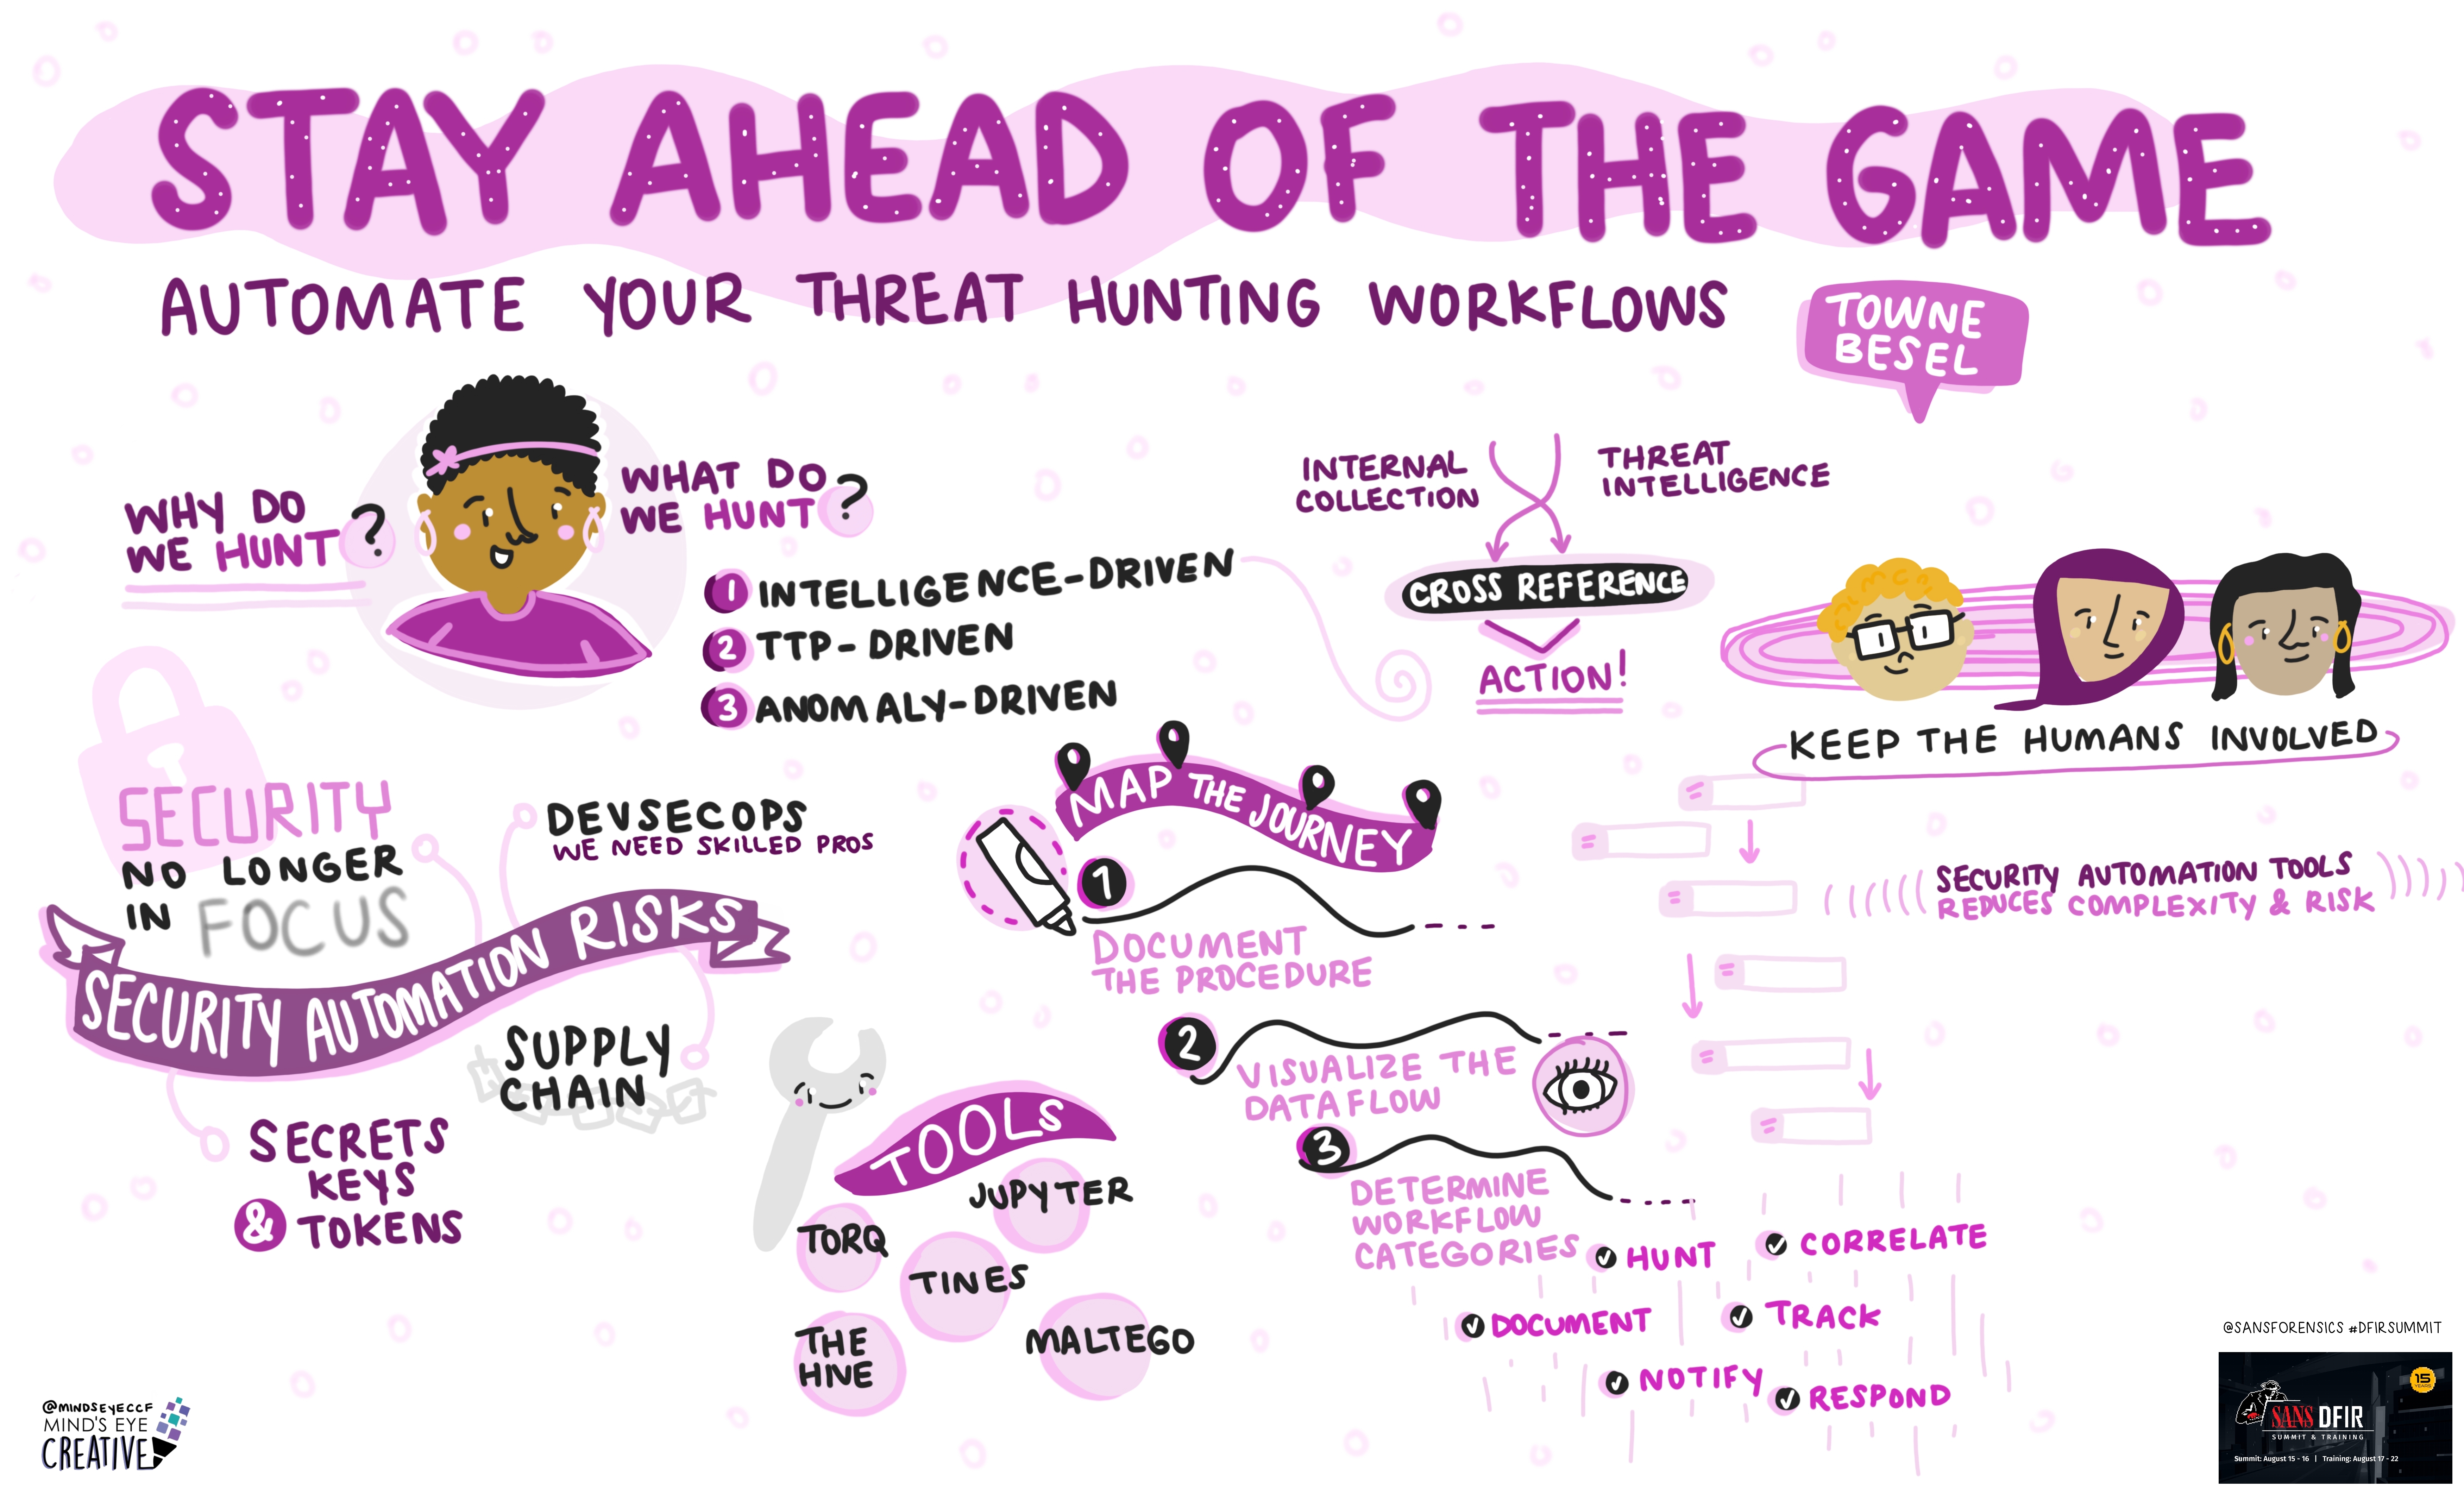 STAY AHEAD OF THE GAME
AUTOMATE YOUR THREAT HUNTING WORKFLOWS
TOWNE
BESEL
WHY DO
WE HUNT ?
WHAT DO
WE HUNT ?
1 INTELLIGENCE-DRIVEN
2 TTP-DRIVEN
3 ANOMALY-DRIVEN
INTERNAL
COLLECTION
THREAT
INTELLIGENCE
CROSS REFERENCE
ACTION!
KEEP THE HUMANS INVOLVED
SECURITY AUTOMATION TOOLS
REDUCES COMPLEXITY & RISK
SECURITY
NO LONGER
IN FOCUS
DEVSECOPS
WE NEED SKILLED PROS
SECURITY AUTOMATION RISKS
SUPPLY
CHAIN
SECRETS
KEYS
& TOKENS
MAP THE JOURNEY
1
DOCUMENT
THE PROCEDURE
2
VISUALIZE THE
DATAFLOW
3
DETERMINE
WORKFLOW
CATEGORIES
HUNT
CORRELATE
DOCUMENT
TRACK
NOTIFY
RESPOND
TOOLS
JUPYTER
TORQ
TINES
THE
HIVE
MALTEGO
@MINDSEYECCF
MIND'S EYE
CREATIVE
@SANSFORENSICS #DFIRSUMMIT
15
YEARS
SANS DFIR
SUMMIT & TRAINING
Summit: August 15 - 16 | Training: August 17 - 22